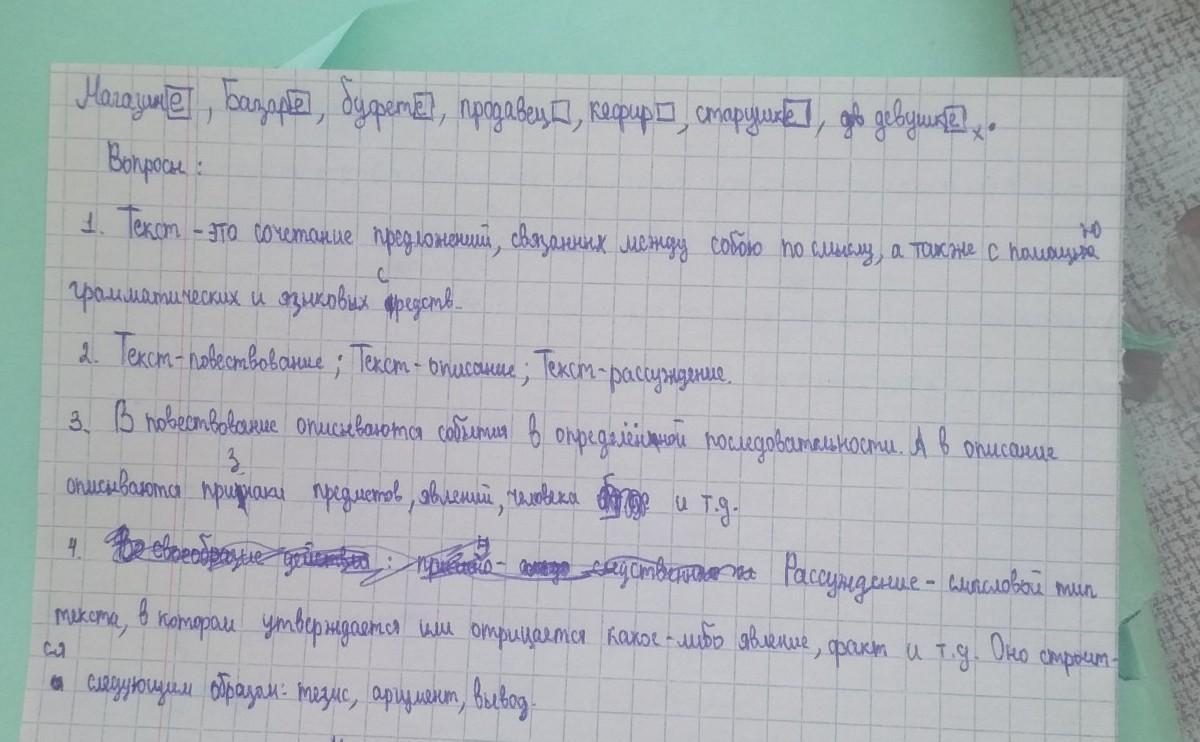 Магазине, Базаре, буфете, продавец, кефир, старушке, девушке.
Вопросы:
1. Текст - это сочетание предложений, связанных между собою по смыслу, а также с помощью
грамматических и языковых средств.
2. Текст-повествование; Текст-описание; Текст-рассуждение.
3. В повествование описываются события в определённой последовательности. А в описание
описываются признаки предметов, явлений, человека и т.д.
4. Рассуждение - смысловой тип
текста, в котором утверждается или отрицается какое-либо явление, факт и т.д. Оно строит-
ся следующим образом: тезис, аргумент, вывод.